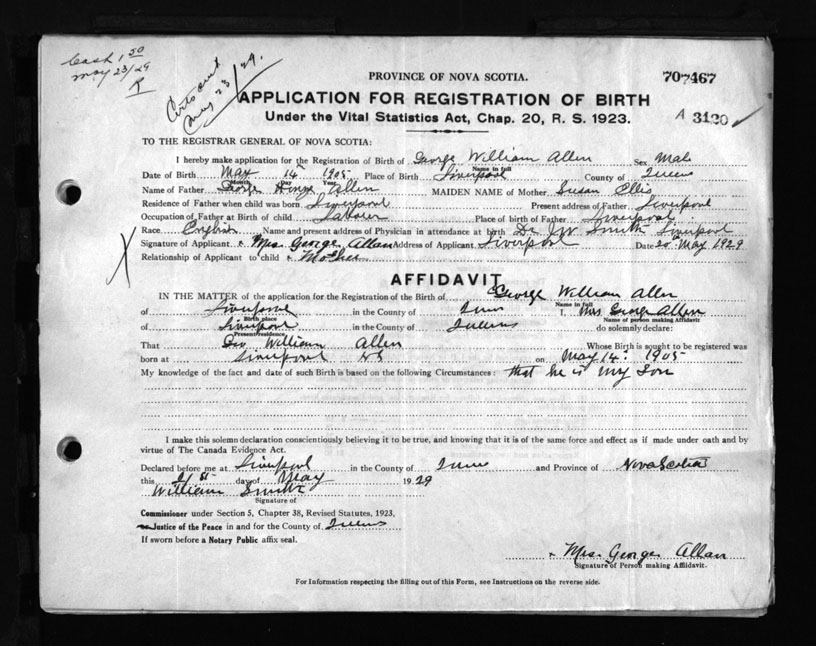 Cash 1 50
May 23/29
PROVINCE OF NOVA SCOTIA.
707467
May 23/29.
APPLICATION FOR REGISTRATION OF BIRTH
A 3120
Under the Vital Statistics Act, Chap. 20, R. S. 1923.
TO THE REGISTRAR GENERAL OF NOVA SCOTIA:
I hereby make application for the Registration of Birth of George William Allen Sex Male
Name in full
Date of Birth May 14 1905 Place of Birth Liverpool County of Queens
Month Day Year
Name of Father George Henry Allen MAIDEN NAME of Mother Susan Ellis
Residence of Father when child was born Liverpool Present address of Father Liverpool
Occupation of Father at Birth of child Laborer Place of birth of Father Liverpool
Race English Name and present address of Physician in attendance at birth Dr J W Smith Liverpool
Signature of Applicant x Mrs George Allan Address of Applicant Liverpool Date 20th May 1929
Relationship of Applicant to child x Mother
AFFIDAVIT
IN THE MATTER of the application for the Registration of the Birth of George William Allen
Name in full
of Liverpool in the County of Queens I, Mrs George Allen
Birth place Name of person making Affidavit
of Liverpool in the County of Queens do solemnly declare:
Present residence
That Geo William Allen Whose Birth is sought to be registered was
born at Liverpool NS on May 14th 1905
My knowledge of the fact and date of such Birth is based on the following Circumstances: that he is my son
I make this solemn declaration conscientiously believing it to be true, and knowing that it is of the same force and effect as if made under oath and by
virtue of The Canada Evidence Act.
Declared before me at Liverpool in the County of Queens and Province of Nova Scotia
this 21st day of May 1929
William Smith
Signature of
Commissioner under Section 5, Chapter 38, Revised Statutes, 1923,
or Justice of the Peace in and for the County of Queens
If sworn before a Notary Public affix seal.
x Mrs. George Allan
Signature of Person making Affidavit.
For Information respecting the filling out of this Form, see Instructions on the reverse side.